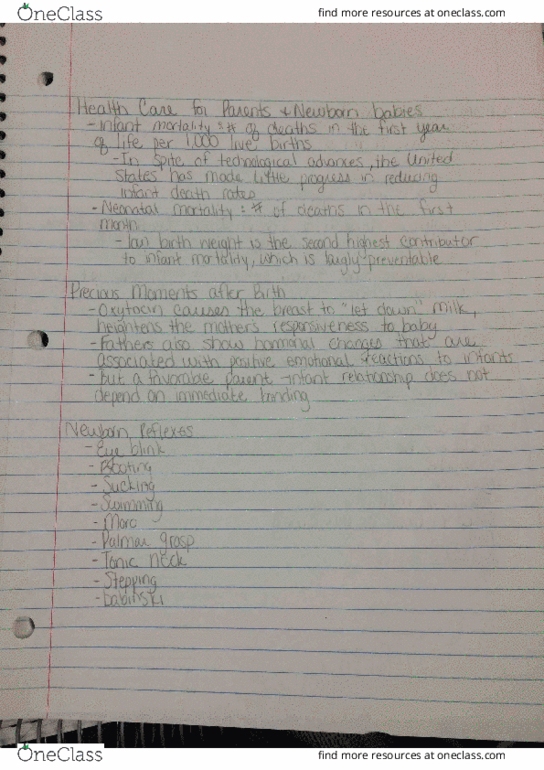 OneClass
find more resources at oneclass.com
Health Care for Parents & Newborn babies
- Infant mortality: # of deaths in the first year
of life per 1,000 live births
- In spite of technological advances, the United
States has made little progress in reducing
infant death rates
- Neonatal mortality: # of deaths in the first
month
- low birth weight is the second highest contributor
to infant mortality, which is largly preventable
Precious Moments after Birth
- Oxytocin causes the breast to "let down" milk,
heightens the mother's responsiveness to baby
- Fathers also show hormonal changes that are
associated with positive emotional reactions to infants
- but a favorable parent-infant relationship does not
depend on immediate bonding
Newborn Reflexes
- Eye blink
- Rooting
- Sucking
- Swimming
- Moro
- Palmar grasp
- Tonic neck
- Stepping
- babinski
OneClass
find more resources at oneclass.com